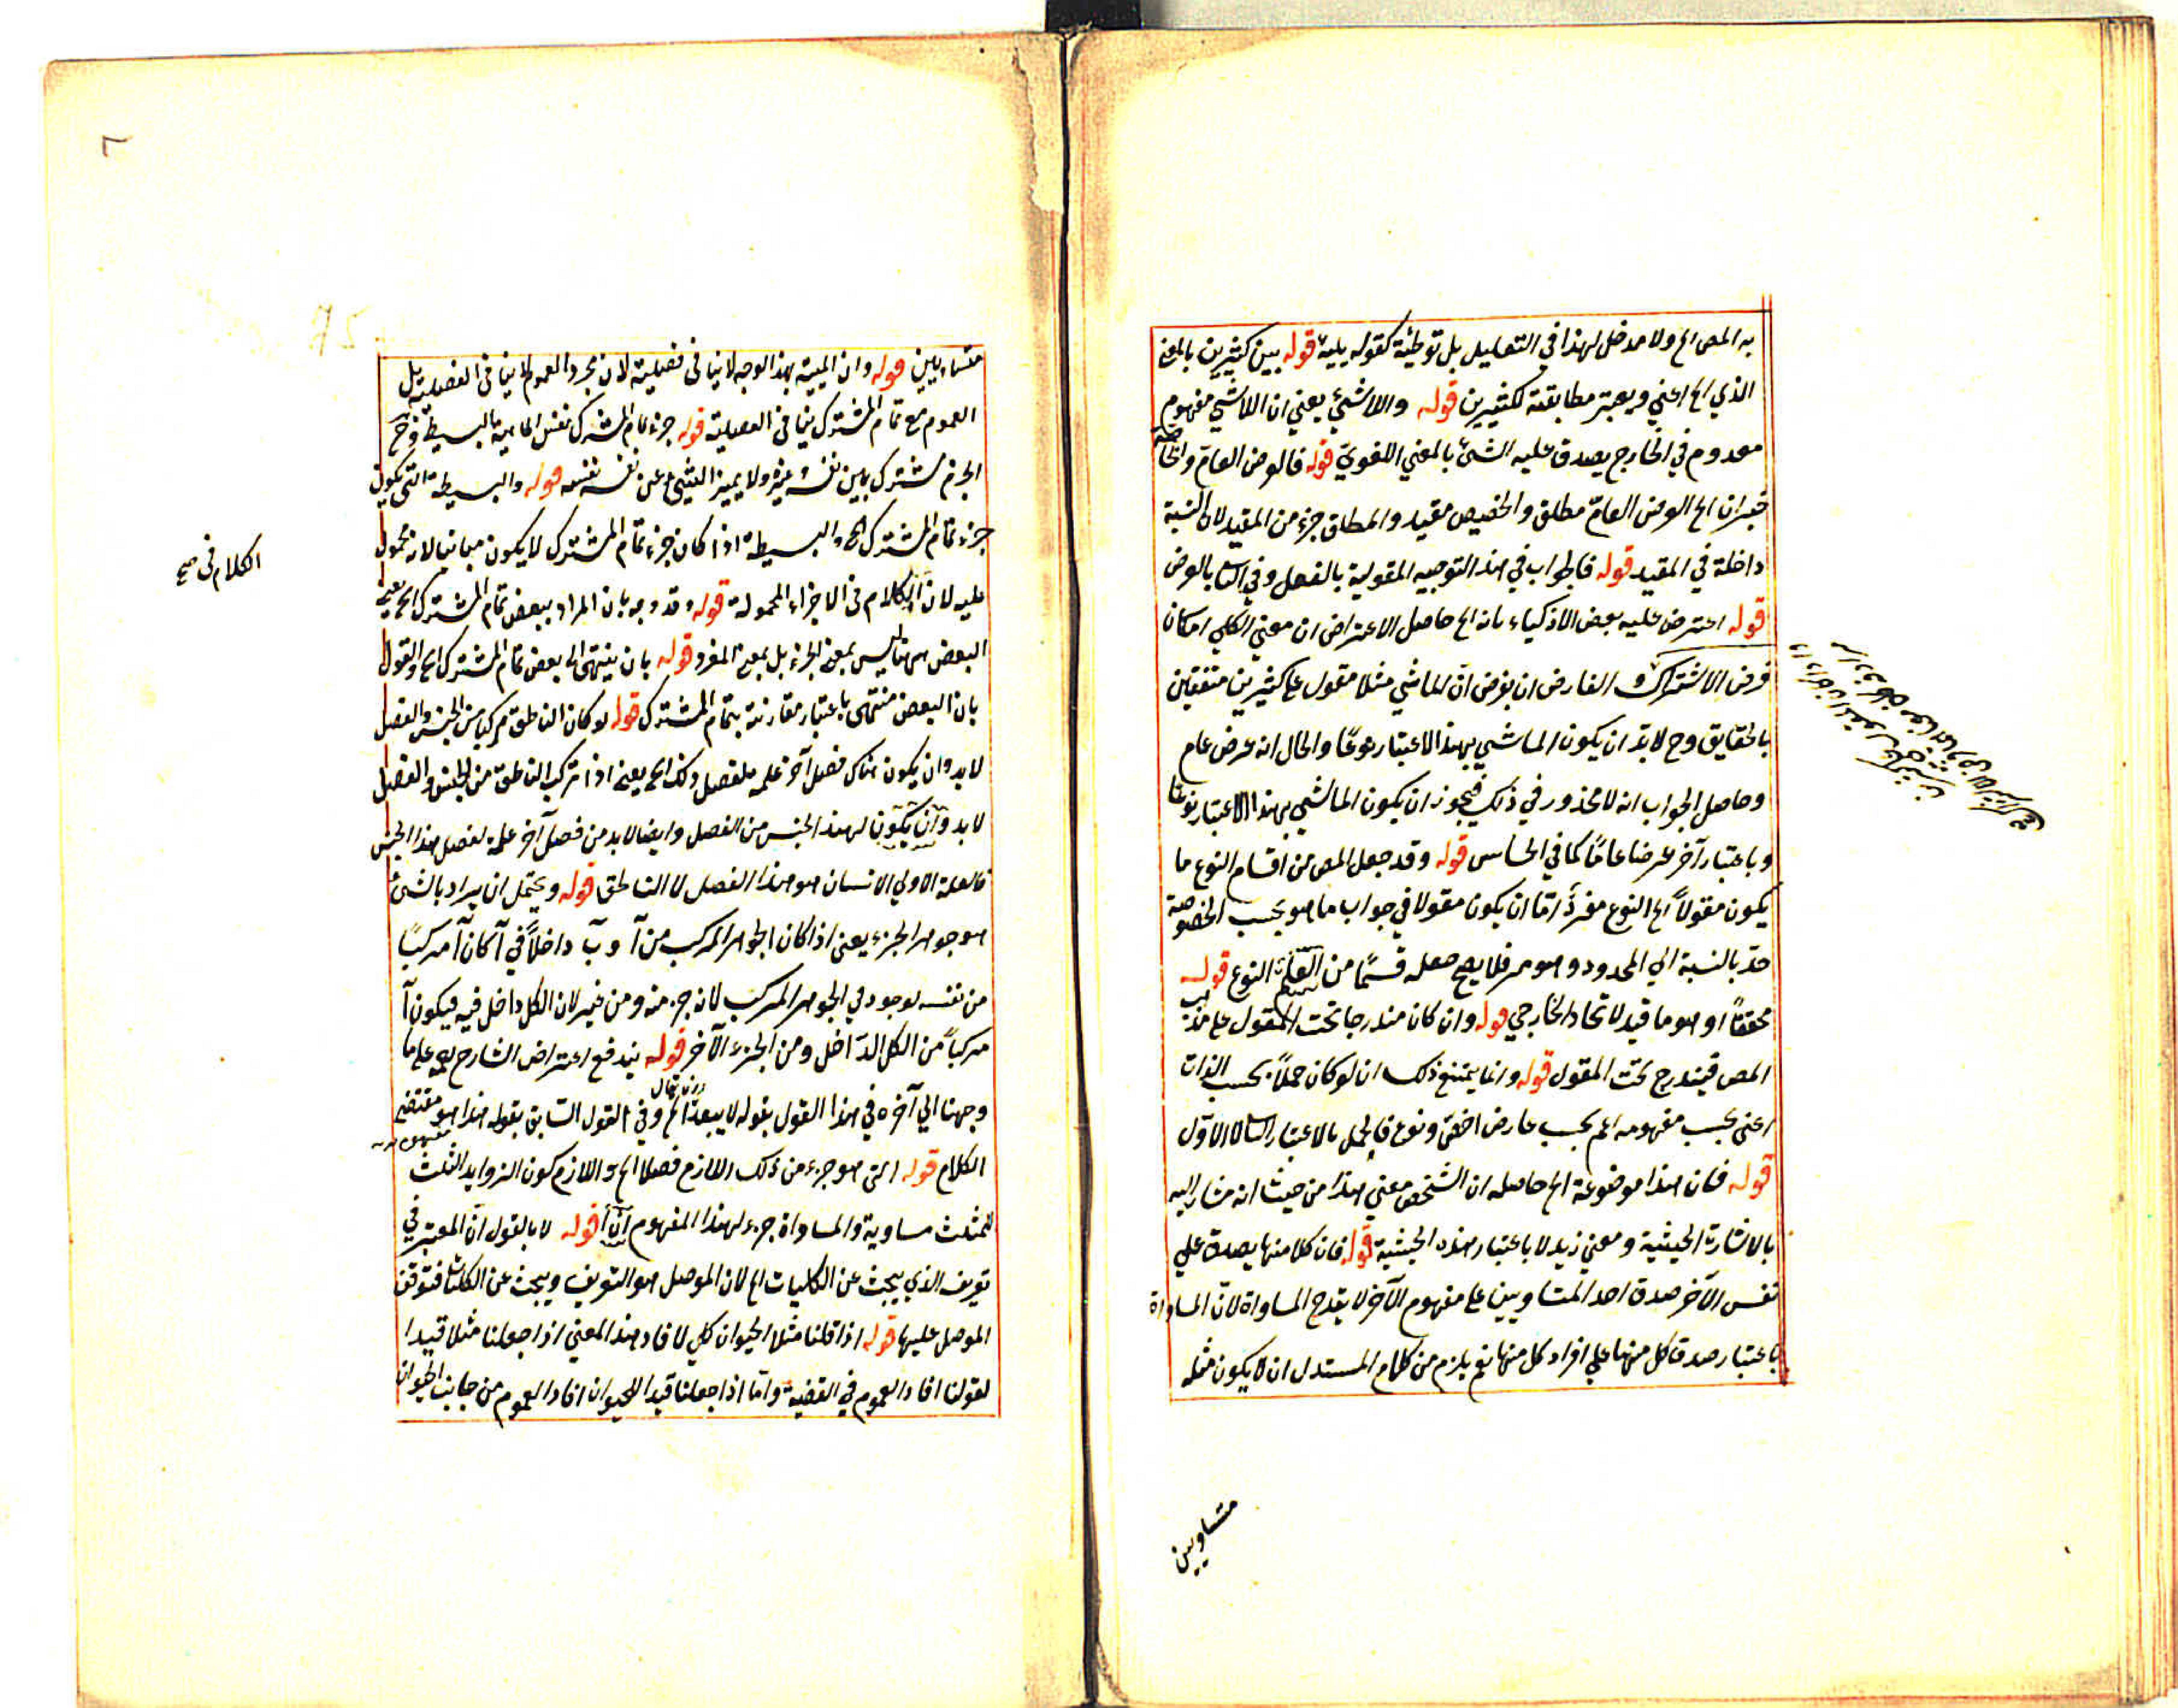 به المص الخ ولا مدخل لهذا في التعليل بل توطئة كقوله يليه قوله بين كثيرين بالمعنى
الذي الخ اعني ويعتبر مطابقته لكثيرين قوله واللاشيئ يعني ان اللاشيئ مفهوم
معدوم في الخارج يصدق عليه الشئ بالمعني اللغوي قوله فالعرض العام والخاصة
العرض العامّ مطلق والخصيص مقيد والمطلق جزء من المقيد لان النسبة
داخلة في المقيد قوله فالجواب في هذا التوجيه المقولية بالفعل وفي بالعرض
قوله اعترض عليه بعض الاذكياء بانه الخ حاصل الاعتراض ان معني الكلي امكان
فرض الاشتراك الفارض ان يفرض انّ الماشي مثلا مقول على كثيرين متفقين
بالحقايق وح لابدّ ان يكون الماشي بهذا الاعتبار نوعًا والحال انه عرض عام
وحاصل الجواب انه لا محذور في ذلك فيجوز ان يكون الماشي بهذا الاعتبار نوعًا
وباعتبار آخر عرضا عامًا كما في الحساس قوله وقد جعل المص من اقسام النوع ما
يكون مقولاً الخ النوع امّا ان يكون مقولا في جواب ما هو بحسب الخصوصية
حدّ بالنسبة الي المحدود وهو فلا يصح جعله قسمًا من النوع قوله
محققًا او هو ما قيد لاتحاد الخارجي قوله وان كان مندرجا تحت المقول على
المص فيندرج تحت المقول قوله وانما يمتنع ذلك ان لو كان حملاً بحسب الذات
اعني بحسب مفهومه اعم بحسب عارض اخصّ ونوع فالحمل بالاعتبار لا الاوّل
قوله فان هذا موضوعة الخ حاصله ان الشخص معني هذا من حيث انه مشار اليه
بالاشارة الحيثية ومعني زيد لا باعتبار هذه الحيثية قوله فان كلا منهما يصدق علي
نفس الآخر صدق احد المتساويين على مفهوم الآخر لا يقدح المساواة لانّ المساواة
باعتبار صدق كل منهما علي افراد كل منهما نعم يلزم من كلام المستدل ان لا يكون مثله
متساويين
متساويين قوله وان المبينة بهذا الوجه لا ينافى فصليته لان مجرد العموم لا ينافى الفصلية بل
العموم مع تمام المشترك ينافى الفصلية قوله جزء تمام المشترك نفس الماهية البسيطة وح
الجزء مشترك بين نفسه وغيره ولا يميز الشيئ عن نفسه قوله والبسيطة التى يكون
جزء تمام المشترك الخ والبسيطة اذا كان جزء تمام المشترك لا يكون مباينا لانه محمول
عليه لان الكلام فى الاجزاء المحمولة قوله وقد وجه بان المراد ببعض تمام المشترك الخ يعني
البعض ههنا ليس بمعنى الجزء بل بمعنى المفرد قوله بان ينتهى الى بعض تمام المشترك الخ والقول
بان البعض منتهى باعتبار مقارنته بتمام المشترك قوله لو كان الناطق مركبا من الجنس والفصل
لابد وان يكون هناك فصل آخر علة لفصل ذلك الخ يعنى اذا تركب الناطق من الجنس والفصل
لابد وان يكون لهذا الجنس من الفصل وايضا لابد من فصل آخر علة لفصل هذا الجنس
فالعلة الاولى الانسان هو هذا الفصل لا الناطق قوله ويحتمل ان يراد بالشئ
هو جوهر الجزء يعنى اذا كان الجوهر المركب من آ وب داخلاً في آ كان آ مركبًا
من نفسه لوجود في الجوهر المركب لانه جزء منه ومن غيره لان الكل داخل فيه فيكون آ
مركباً من الكل الداخل ومن الجزء الآخر قوله يندفع اعتراض الشارح على ما
وجهنا الي آخره في هذا القول بقوله لا يبعد الخ وفي القول السابق بقوله هذا هو مقتضى
الكلام قوله التى هو جزء من ذلك اللازم فصلا الخ واللازم كون الزوايا الثلث
للمثلث مساوية والمساواة جزء لهذا المفهوم قوله لا بالقول انّ المعتبر في
تعريف الذي يبحث عن الكليات الخ لان الموصل هو التعريف ويبحث عن الكليات فتوقف
الموصل عليها قوله اذا قلنا مثلا الحيوان كلي لافاد هذا المعني اذا جعلنا مثلا قيدا
لقولنا افاد العموم في القضية وامّا اذا جعلنا قيدا للحيوان افاد العموم من جانب الحيوان
الكلام فى صح